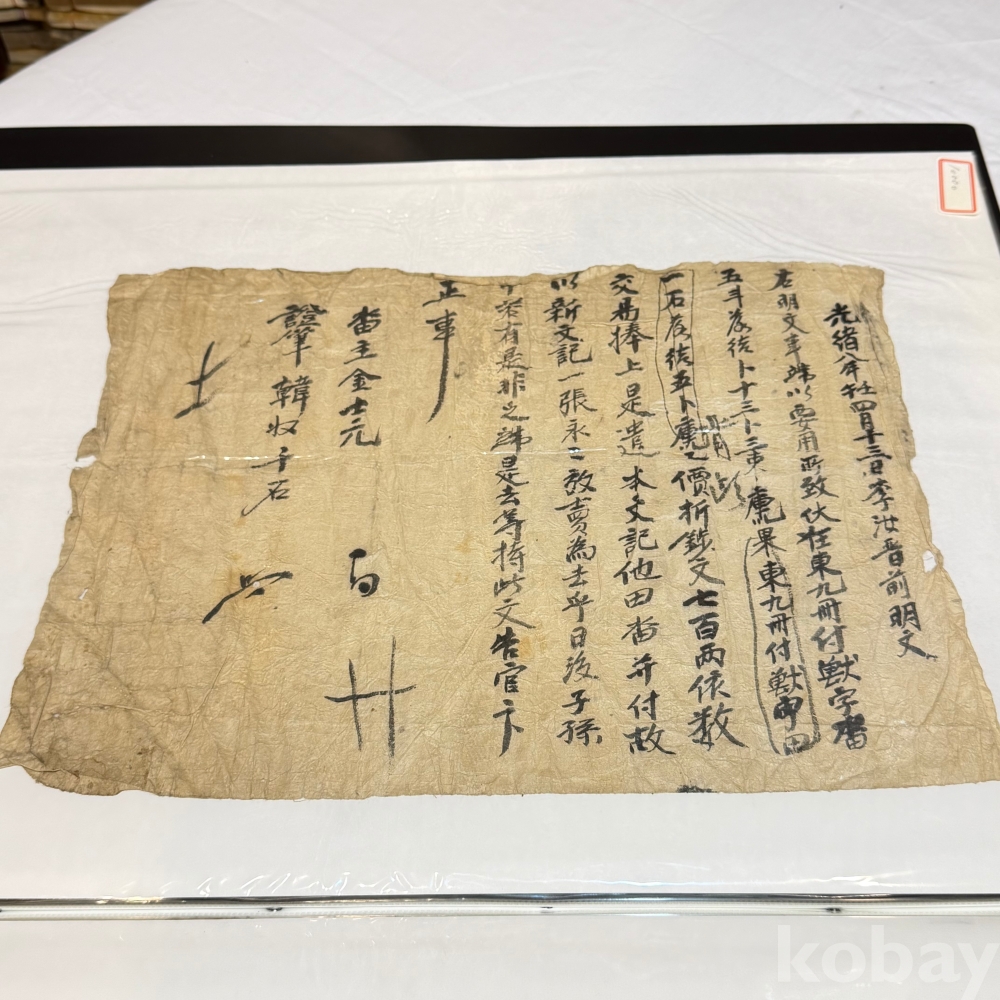 光緒八年壬四月十三日李汝晋前明文
右明文事段以要用所致伏在東九冊付獸字畓
五斗落結卜十三卜三束㢘果東九冊付獸字田
一石落結五卜㢘乙價折錢文七百兩依數
交易捧上是遣本文記他田畓并付故
以新文記一張永々放賣為去乎日後子孫
若有是非之端是去等持此文告官卞
正事
畓主金士元
證筆韓
kobay